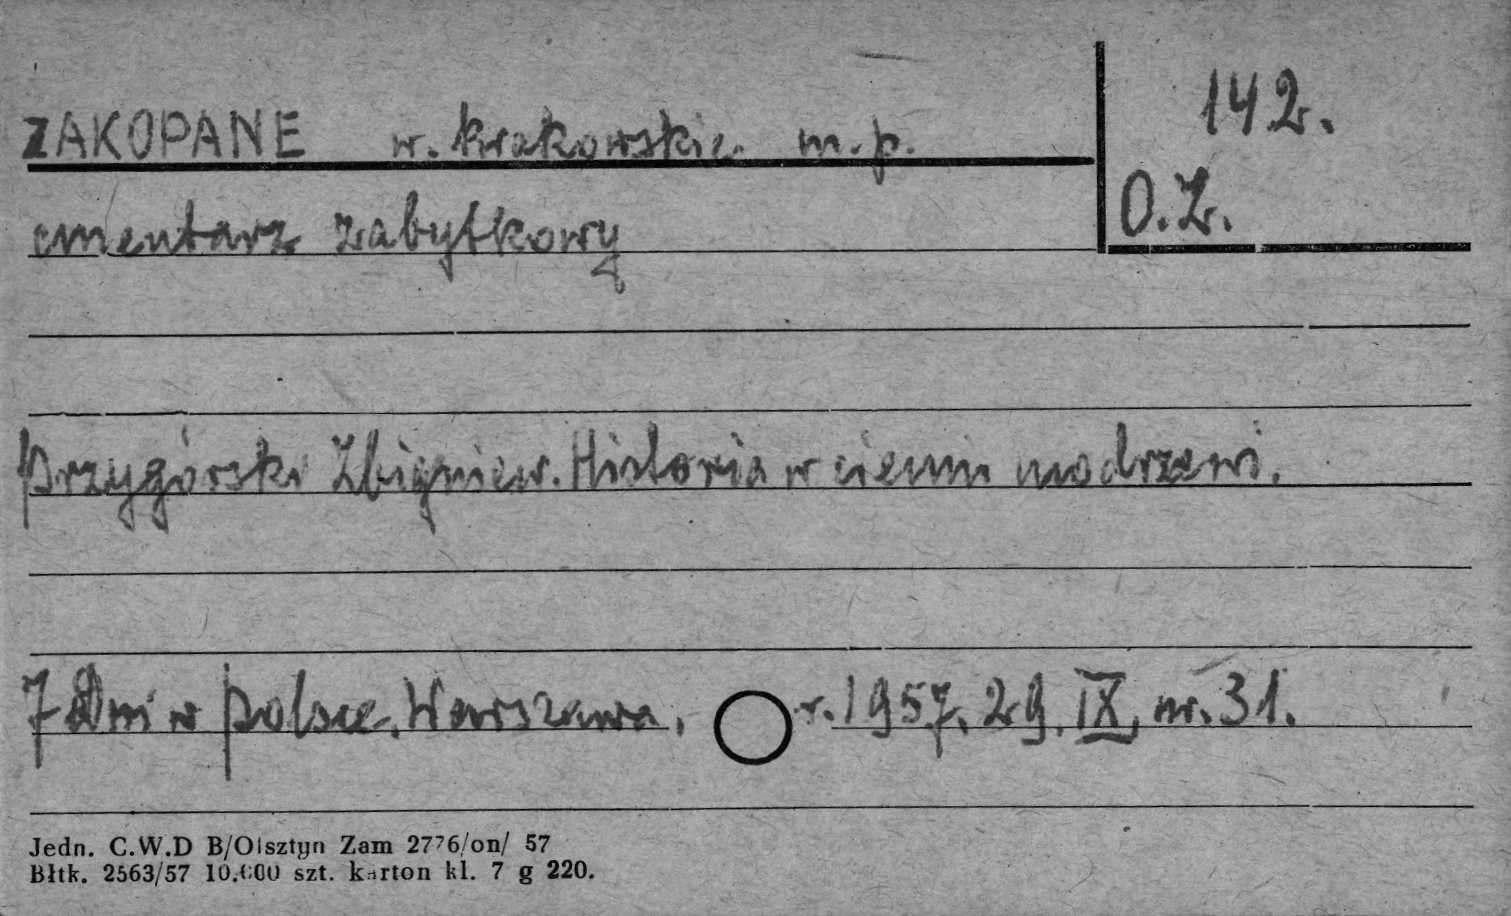 ZAKOPANE w. krakowskie m.p.
142.
O.Z.
cmentarz zabytkowy
Przygórski Zbigniew. Historia w cieniu modrzewi.
7 Dni w Polsce. Warszawa, r. 1957. 29. IX, nr. 31.
Jedn. C.W.D B/Olsztyn Zam 2776/on/ 57
Błtk. 2563/57 10.000 szt. karton kl. 7 g 220.